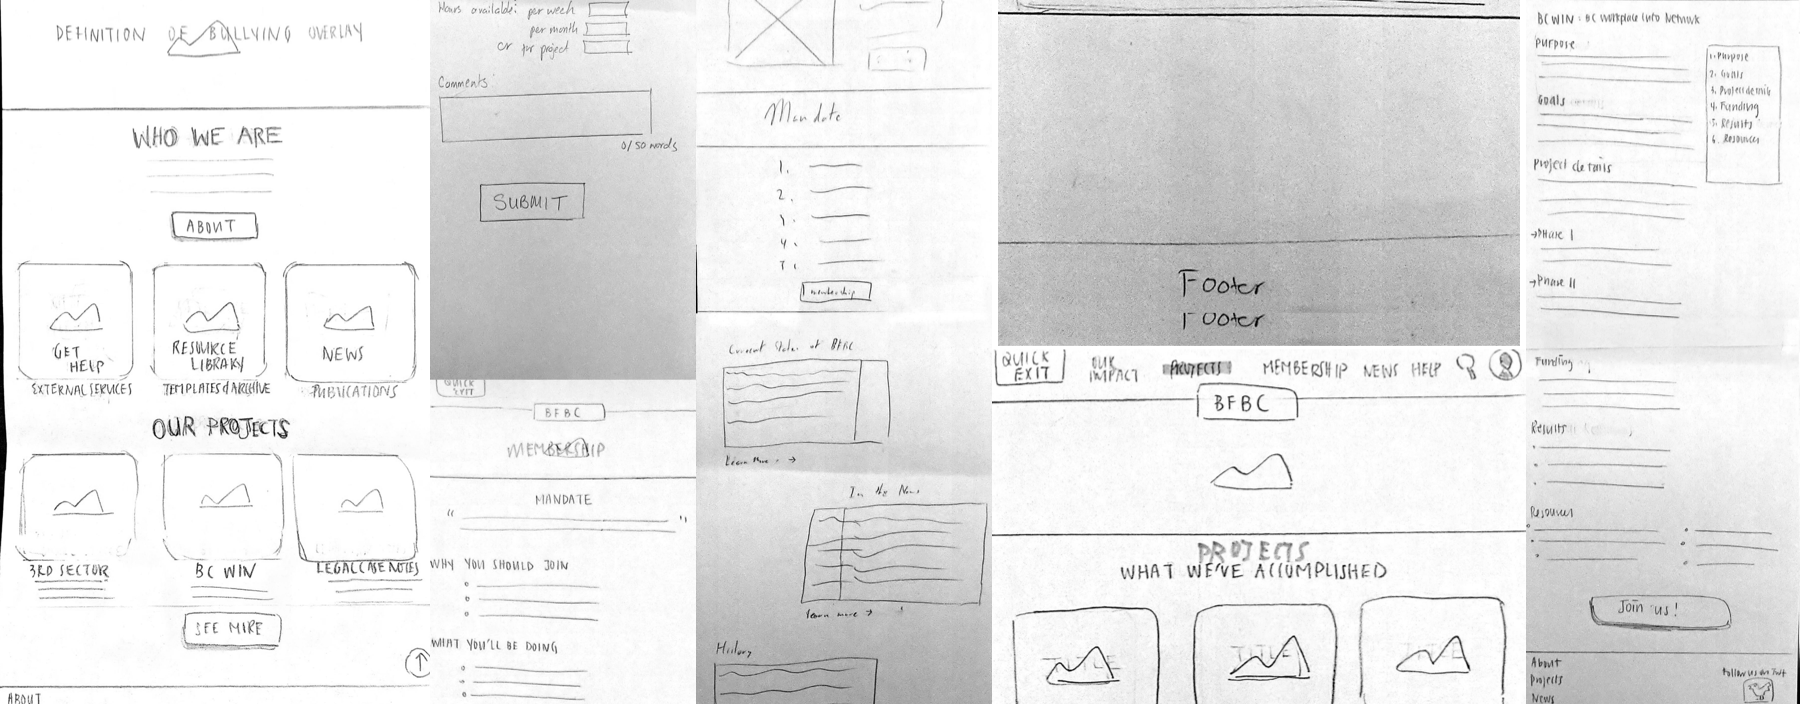 DEFINITION OF BULLYING OVERLAY
WHO WE ARE
ABOUT
GET HELP
EXTERNAL SERVICES
RESOURCE LIBRARY
TEMPLATES & ARCHIVE
NEWS
PUBLICATIONS
OUR PROJECTS
3RD SECTOR
BC WIN
LEGAL CASE NOTES
SEE MORE
ABOUT
Hours available: per week
per month
or per project
Comments:
0/50 words
SUBMIT
QUICK EXIT
BFBC
MEMBERSHIP
MANDATE
" "
WHY YOU SHOULD JOIN
WHAT YOU'LL BE DOING
Mandate
1.
2.
3.
4.
5.
membership
Current State of BFBC
Learn More →
In the News
learn more →
History
Footer
Footer
QUICK EXIT
OUR IMPACT
PROJECTS
MEMBERSHIP
NEWS
HELP
BFBC
PROJECTS
WHAT WE'VE ACCOMPLISHED
TITLE
TITLE
TITLE
BC WIN: BC Workplace Info Network
Purpose
Goals
Project details
→Phase I
→Phase II
1. Purpose
2. Goals
3. Project details
4. Funding
5. Results
6. Resources
Funding
Results
Resources
Join us!
About
Projects
News
Follow us on